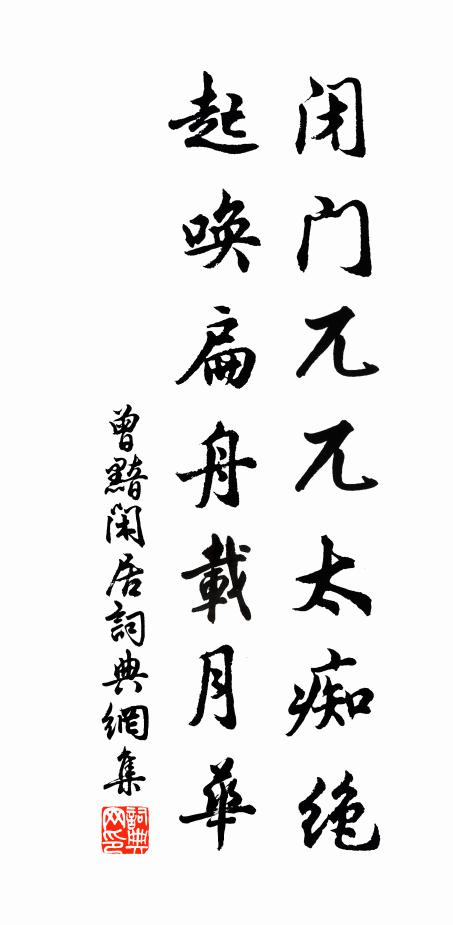 闭门兀兀太痴绝
起唤扁舟載月華
曾黯闲居詞典網集
詞典网印